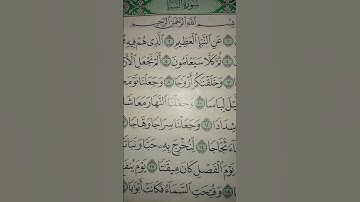 سُورَةُ النَّبَإِ
بِسْمِ اللَّهِ الرَّحْمَٰنِ الرَّحِيمِ
عَنِ النَّبَإِ الْعَظِيمِ ٢ الَّذِي هُمْ فِيهِ
ثُمَّ كَلَّا سَيَعْلَمُونَ ٥ أَلَمْ نَجْعَلِ الْأَرْ
٧ وَخَلَقْنَاكُمْ أَزْوَاجًا ٨ وَجَعَلْنَا نَوْمَ
لِبَاسًا ١٠ وَجَعَلْنَا النَّهَارَ مَعَاشًا
شِدَادًا ١٢ وَجَعَلْنَا سِرَاجًا وَهَّاجًا
ثَجَّاجًا ١٤ لِّنُخْرِجَ بِهِ حَبًّا وَنَبَاتًا
يَوْمَ الْفَصْلِ كَانَ مِيقَاتًا ١٧ يَوْمَ يُنفَخُ
١٨ وَفُتِحَتِ السَّمَاءُ فَكَانَتْ أَبْوَابًا